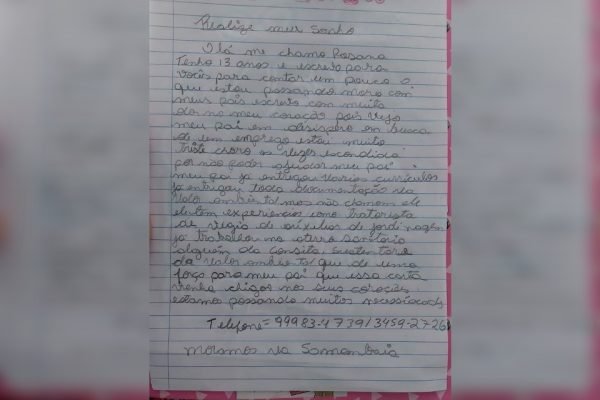 Realize meu Sonho
Olá me chamo Rosana
Tenho 13 anos e escrevo para
vocês para contar um pouco o
que estou passando moro com
meus pais escrevo com muita
dor no meu coração pois vejo
meu pai em desispero em busca
de um emprego estou muito
triste choro as vezes escondida
por não poder ajudar meu pai
meu pai ja entregou varios curriculos
ja entregou toda documentação na
Valor ambiental mos não chamam ele
ele tem experiencias como tratorista
de serviço de auxiliar de jardinagem
ja trabalhou no aterro sanitario
alguém da consita, sustentare
da Valor ambiental que de uma
força para meu pai que essa carta
venha chegar nos seus corações
estamos passando muitas necessidades
Telefone= 99983-4739/3459-2726
moramos na Samambaia